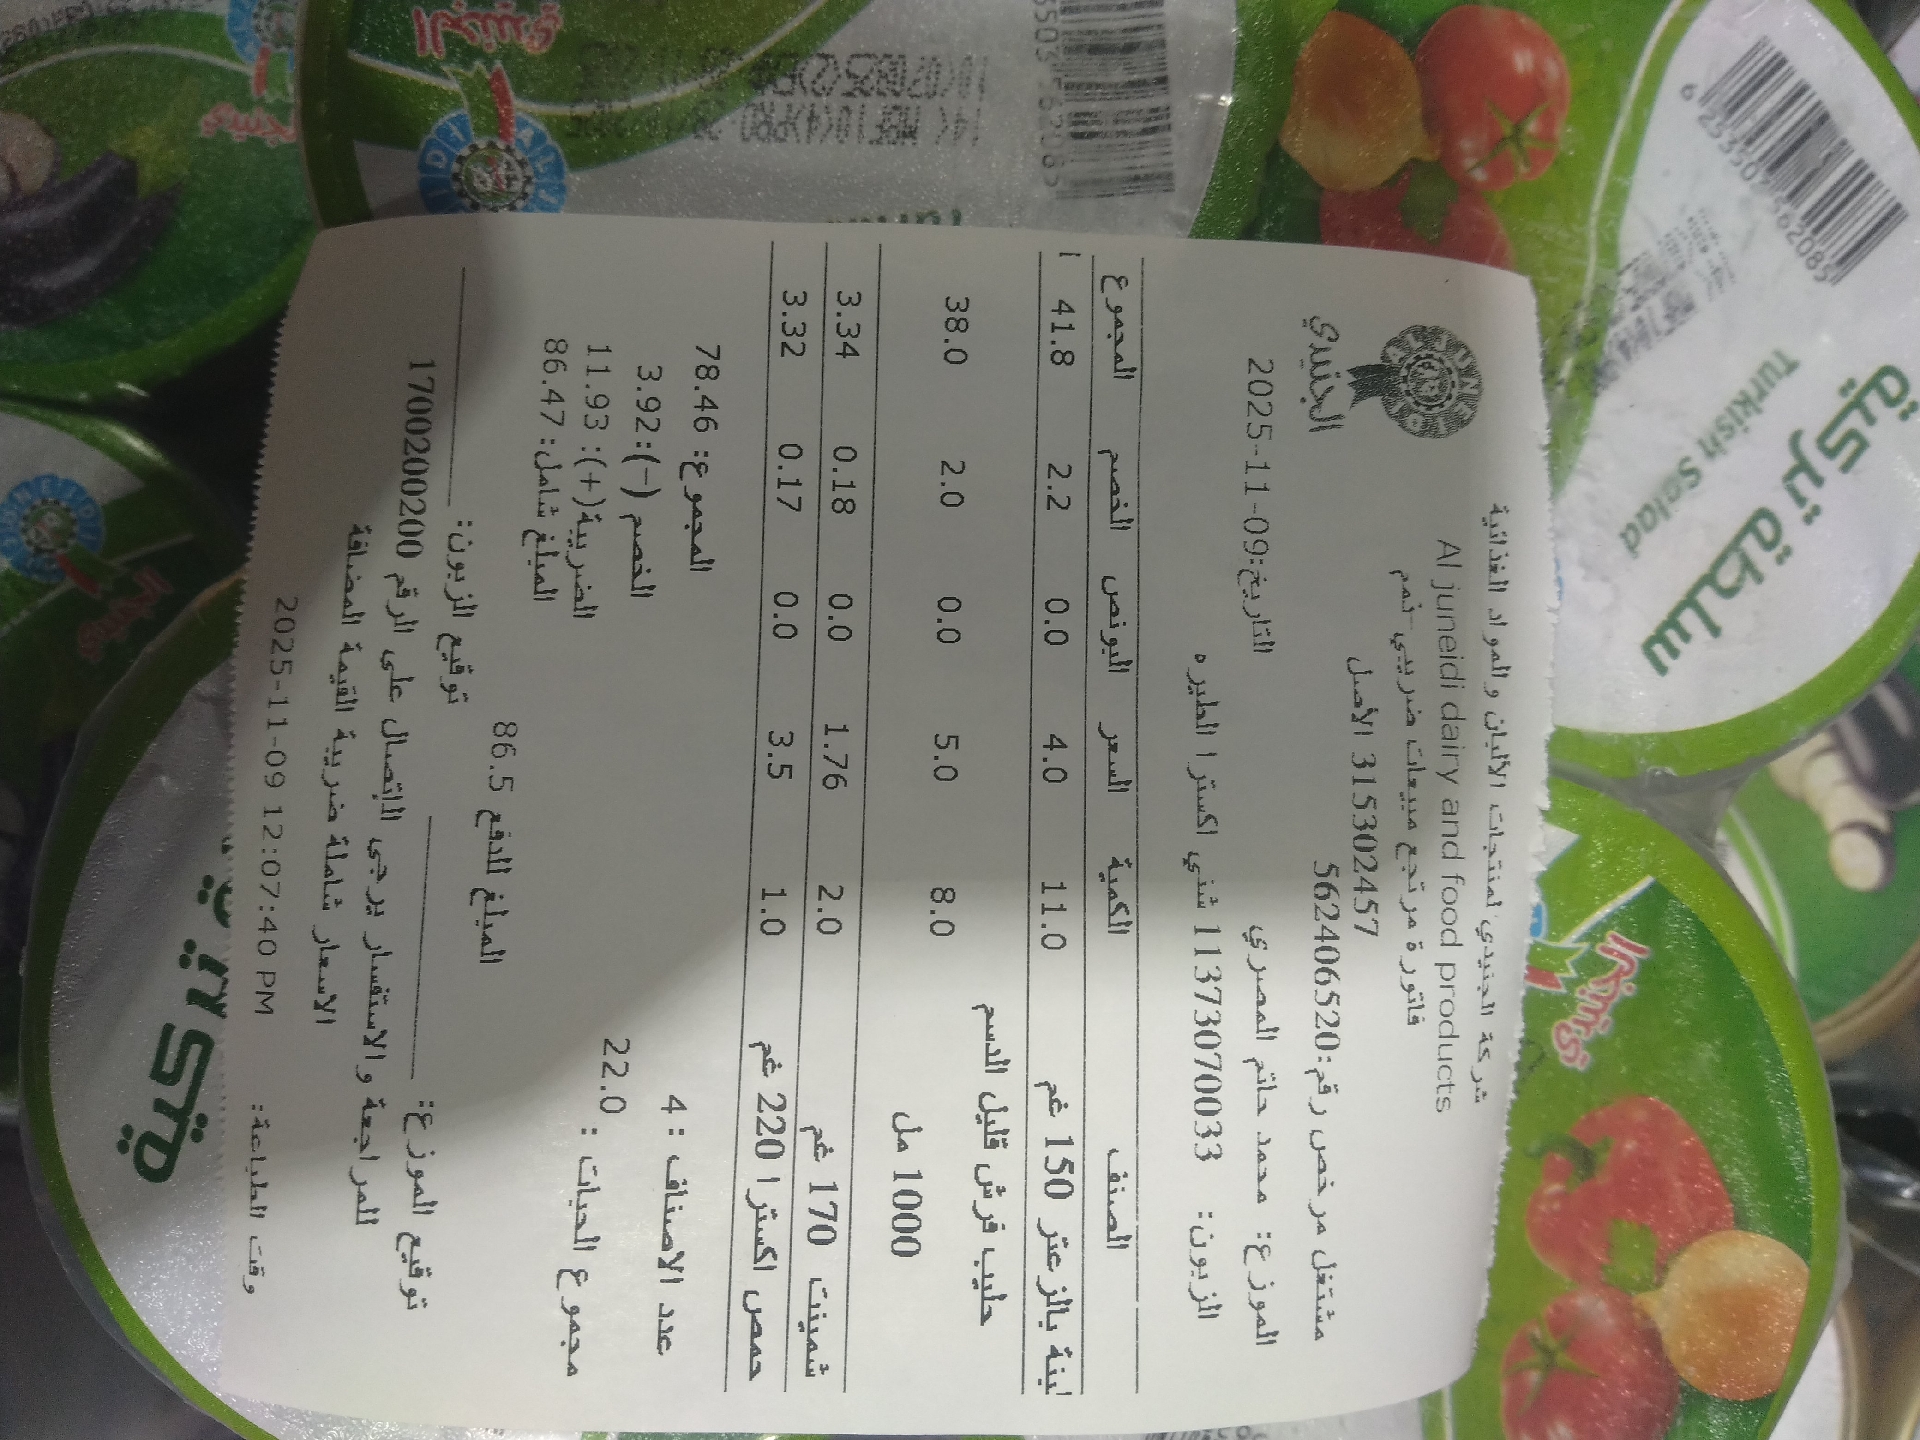 شركة الجنيدي لمنتجات الألبان والمواد الغذائية
Al juneidi dairy and food products
الجنيدي
فاتورة مرتجع مبيعات ضريبي-ثمم
315302457 الأصل
مشتغل مرخص رقم:562406520
التاريخ:2025-11-09
الموزع: محمد حاتم المصري
الزبون: 11373070033 شني اكسترا الطيره
الصنف الكمية السعر البونص الخصم المجموع
لبنة بالزعتر 150 غم 11.0 4.0 0.0 2.2 41.8
حليب فرش قليل الدسم 8.0 5.0 0.0 2.0 38.0
1000 مل
شمينت 170 غم 2.0 1.76 0.0 0.18 3.34
حمص اكسترا 220 غم 1.0 3.5 0.0 0.17 3.32
المجموع: 78.46
عدد الاصناف : 4
الخصم (-):3.92
مجموع الحبات : 22.0
الضريبة(+): 11.93
المبلغ شامل: 86.47
المبلغ للدفع 86.5
توقيع الزبون:
توقيع الموزع:
للمراجعة والاستفسار يرجى الاتصال على الرقم 1700200200
الاسعار شاملة ضريبة القيمة المضافة
وقت الطباعة: 2025-11-09 12:07:40 PM
سلطة تركية
Turkish Salad
6 253502 562085
الجنيدي
الجنيدي
تركية